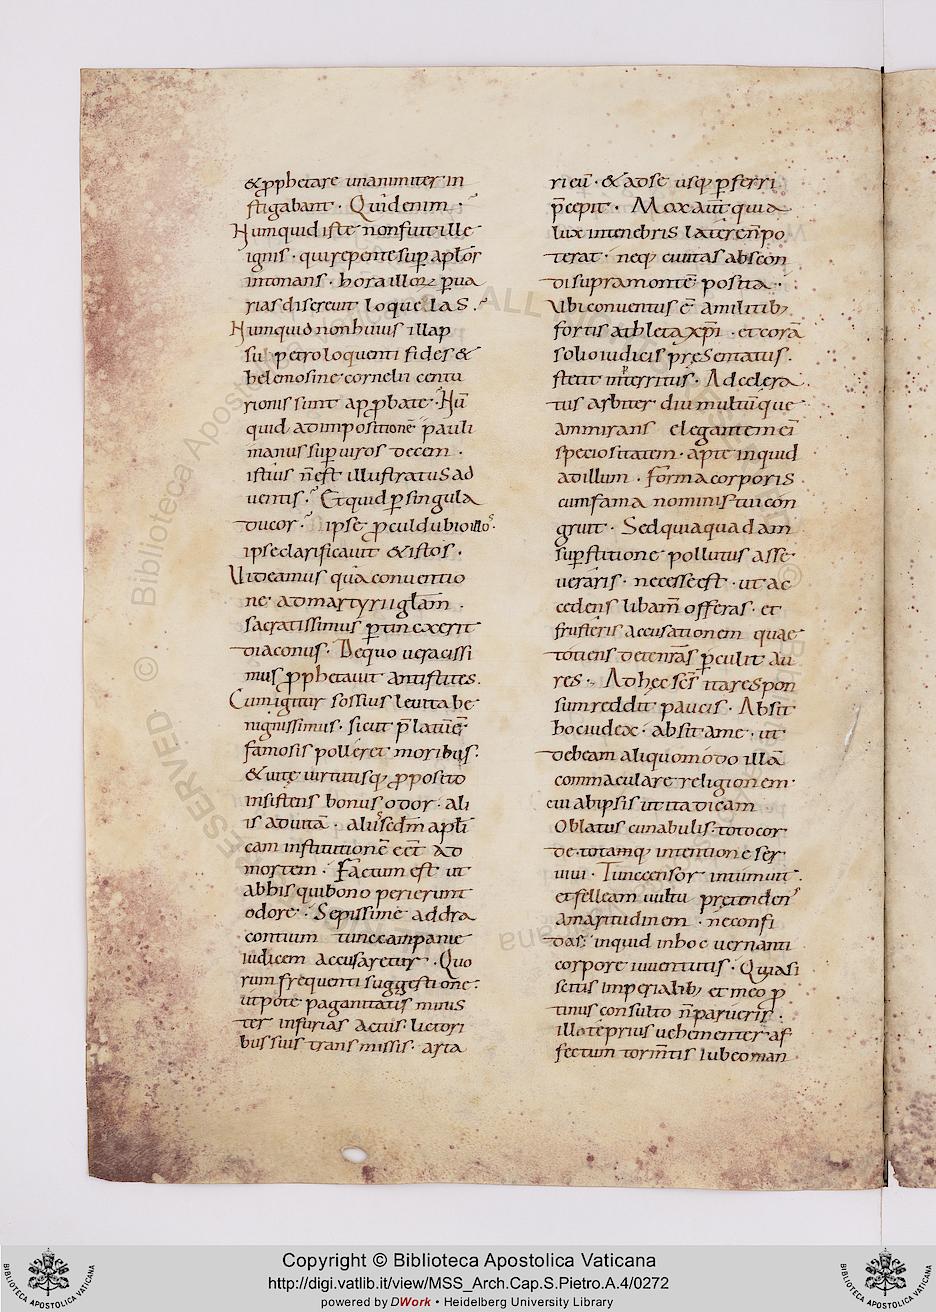 & ꝓphetare unanimiter in
stigabant · Quid enim ·
Numquid iste non fuit ille
ignis · qui repente sup̄ apl̄or
intonans · hora illoꝝ ꝑ ua
rias discreuit loquelas ·
Numquid non huius illap
su · petro loquenti fides &
helemosine cornelii centu
rionis sunt apꝓbate · Nū
quid ad impositionē pauli
manus suꝑ uiros decem ·
istius n̄ est illustratus ad
uentis · Et quid ꝑ singula
ducor · ipse ꝓculdubio illos ·
ipse clarificauit & istos ·
Uideamus qua conuentio
ne ad martyrii gl̄am ·
sacratissimus ꝑtinexerit
diaconus · De quo ueracissi
mus ꝓphetauit antistites ·
Cum igitur sossius leuita be
nignissimus · sicut p̄latū ē
famosis polleret moribus ·
& uitę uirtutisq; ꝓposito
insistens bonus odor · ali
is ad uitā · aliis sedm̄ apl̄i
cam institutionē eēt ad
mortem · Factum est ut
ab his qui bono perierunt
odore · Sepissime ad dra
contium tunc campanie
iudicem accusaretur · Quo
rum frequenti suggestione
utpote paganitatis minis
ter infurias actus · lictori
bus suis transmissis · arta
ri eū · & ad se usq; ꝑferri
p̄cepit · Mox aūt quia
lux in tenebris latere n̄ po
terat · neq; ciuitas abscon
di supra montē posita ·
Ubi conuentus ē a militib;
fortis athleta xp̄i · et corā
solio iudicis pręsentatus ·
stetit interritus · Ad celera
tus arbiter diu multūque
ammirans elegantem ei
speciositatem · apte inquid
ad illum · forma corporis
cum fama nominis tui con
gruit · Sed quia quadam
suꝑstitione pollutus asse
ueraris · necesse est · ut ac
cedens libam̄ offeras · et
frusteris accusationem quae
totiens detenras ꝑculit au
res · Ad hęc sc̄s ita respon
sum reddit paucis · Absit
hoc iudex · absit a me · ut
debeam aliquomodo illā
commaculare religionem ·
cui ab ipsis ut ita dicam
Oblatus cunabulis · toto cor
de · totamq; intentione ser
uiui · Tunc censor intumuit ·
et felleam uultu prętendens
amaritudinem · ne confi
das · inquid in hoc uernanti
corpore iuuentutis · Quia si
scitis imperialib; et meo ꝓ
tinus consulto n̄ parueris ·
illo te prius uehementer af
fectum torm̄tis iubeo man
Copyright © Biblioteca Apostolica Vaticana
http://digi.vatlib.it/view/MSS_Arch.Cap.S.Pietro.A.4/0272
powered by DWork • Heidelberg University Library